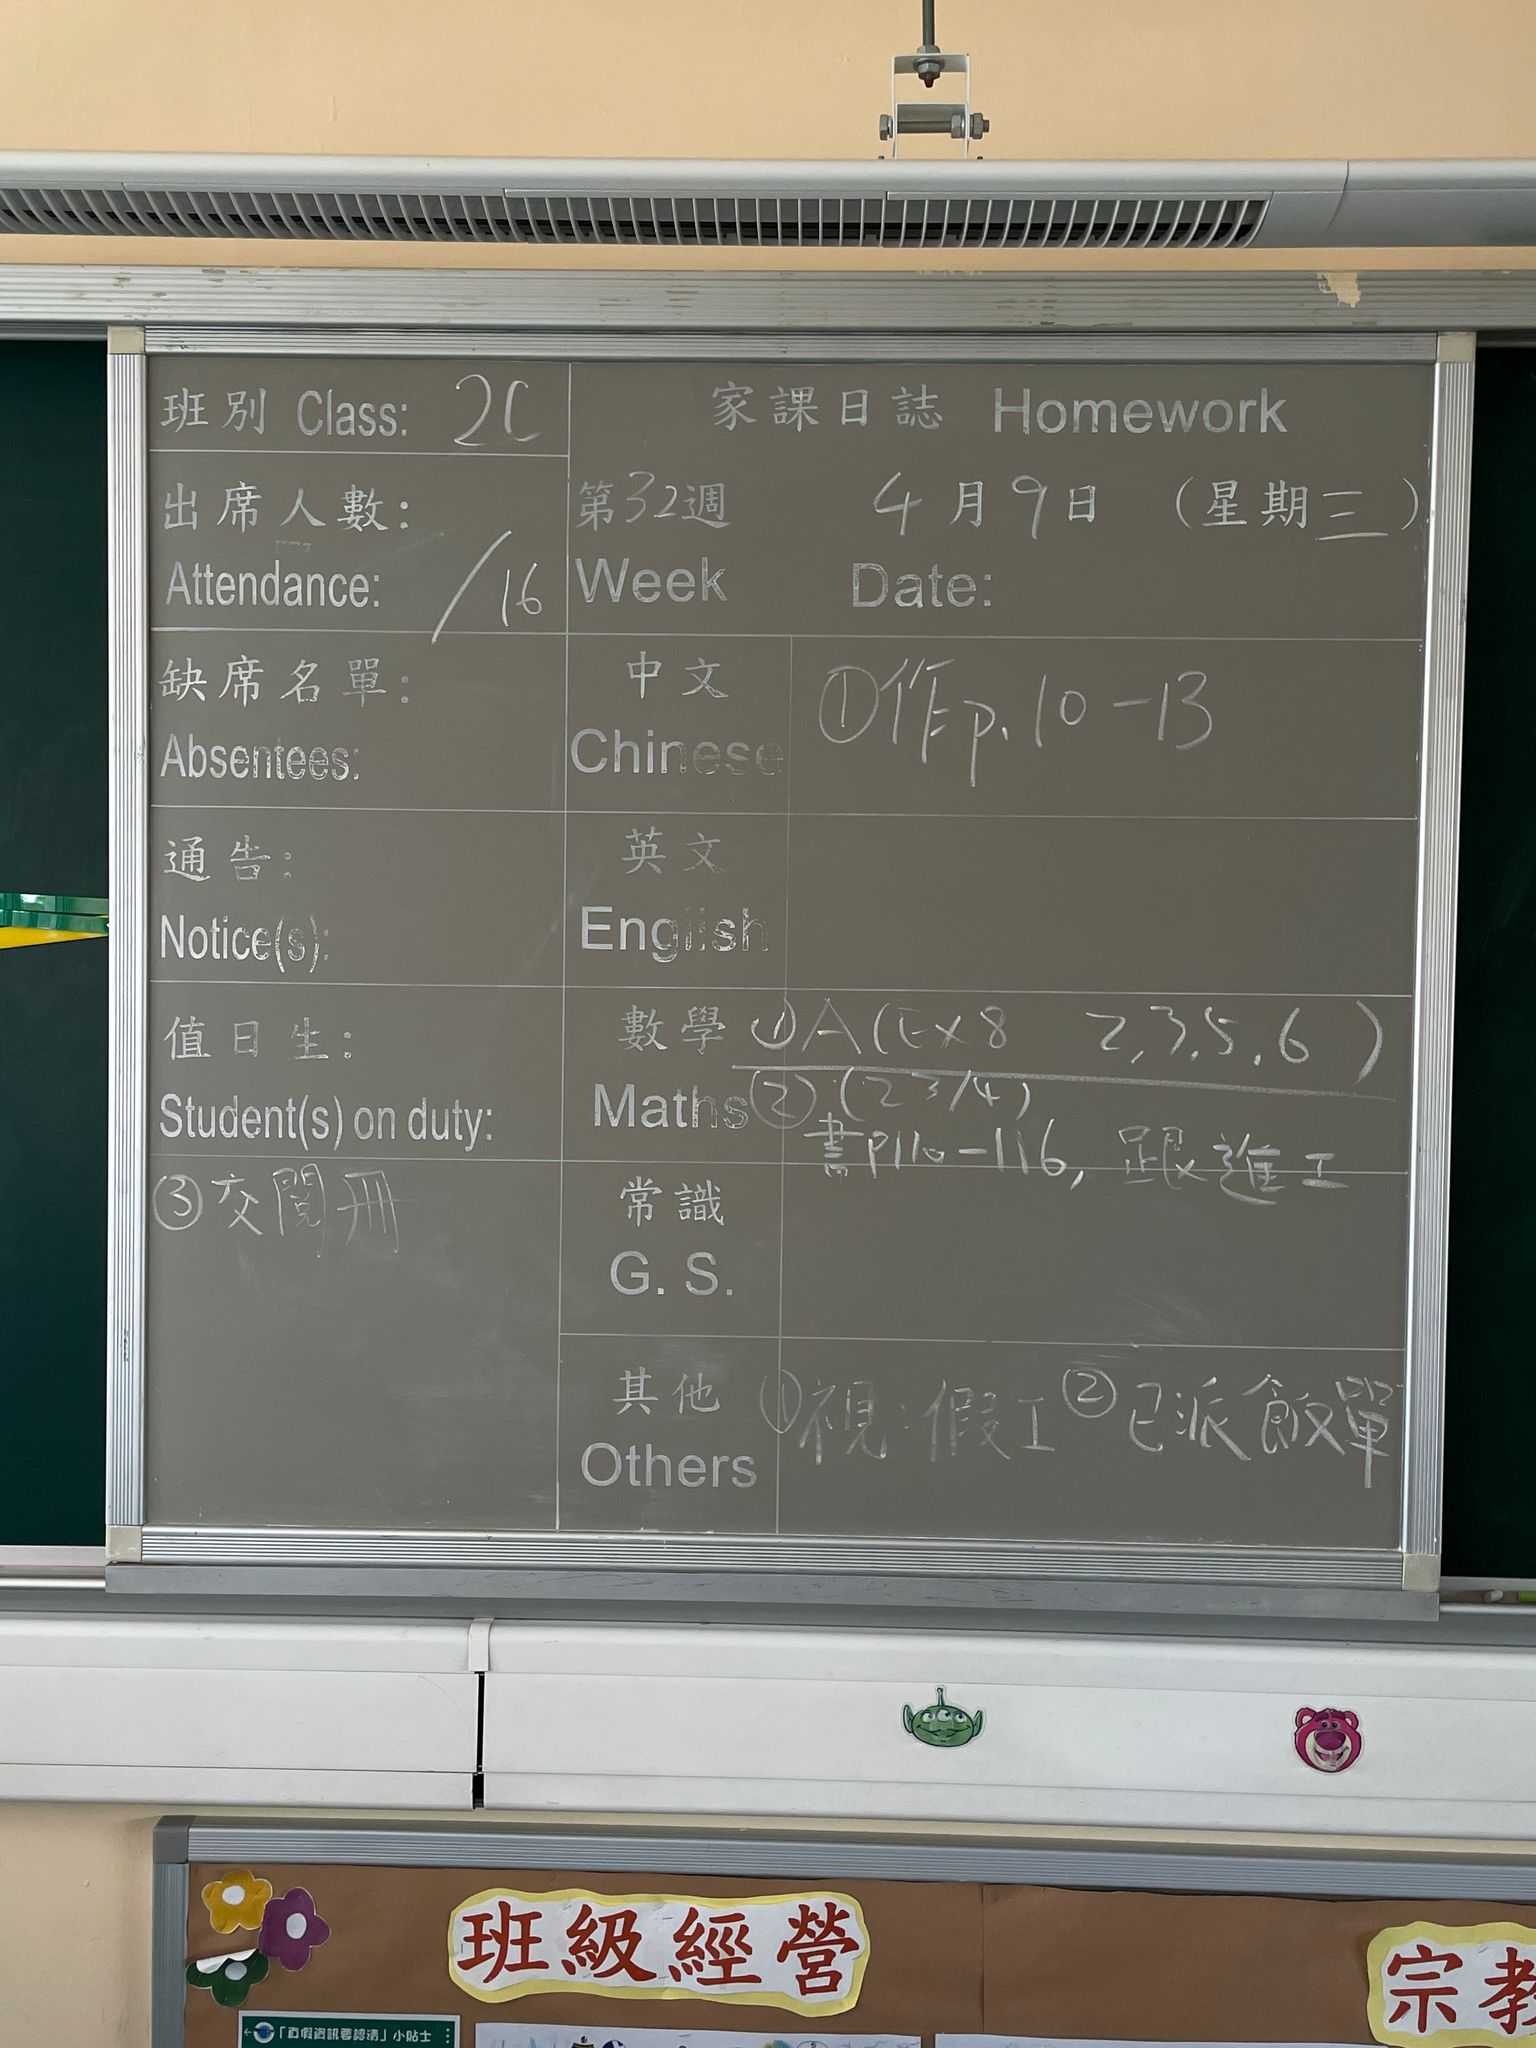 班別 Class: 2C
出席人數:
Attendance: /16
缺席名單:
Absentees:
通告:
Notice(s):
值日生:
Student(s) on duty:
③交閱冊
家課日誌 Homework
第32週 4月9日 (星期三)
Week Date:
中文
Chinese
①作p.10-13
英文
English
數學
Maths
①A(Ex8 2,3,5,6)
②(23/4)
書P110-116, 跟進工
常識
G. S.
其他
Others
①視:假工 ②已派飯單
班級經營
宗教
「真假資訊要認清」小貼士